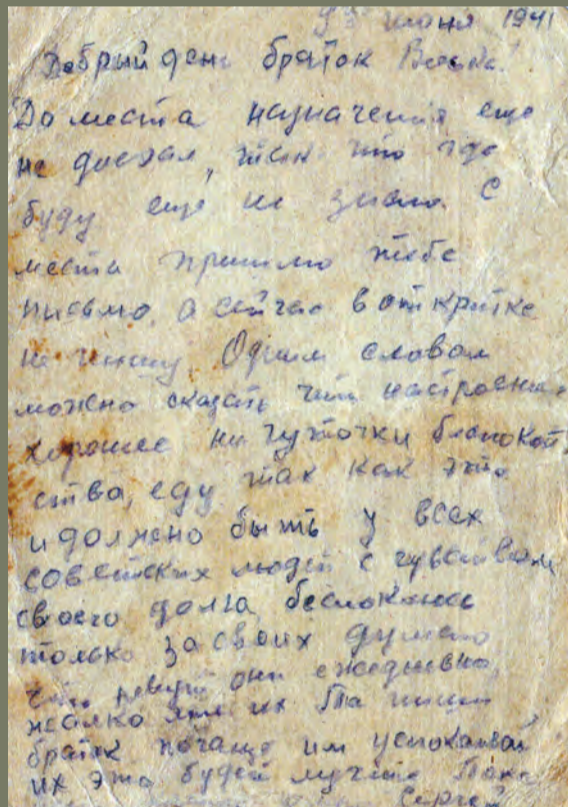 июня 1941
Добрый день браток
До места назначения еще
не доехал, так что где
буду еще не знаю. С
места пришлю тебе
письмо, а сейчас в открытке
не пишу. Одним словом
можно сказать что настроение
хорошее ни чуточки беспокой
ства, еду так как это
и должно быть у всех
советских людей с чувством
своего долга, беспокоюсь
только за своих думаю
что ревут они ежедневно,
жалко мне их Ты пиши
браток почаще им успокаивай
их это будет лучше Пока
Сергей